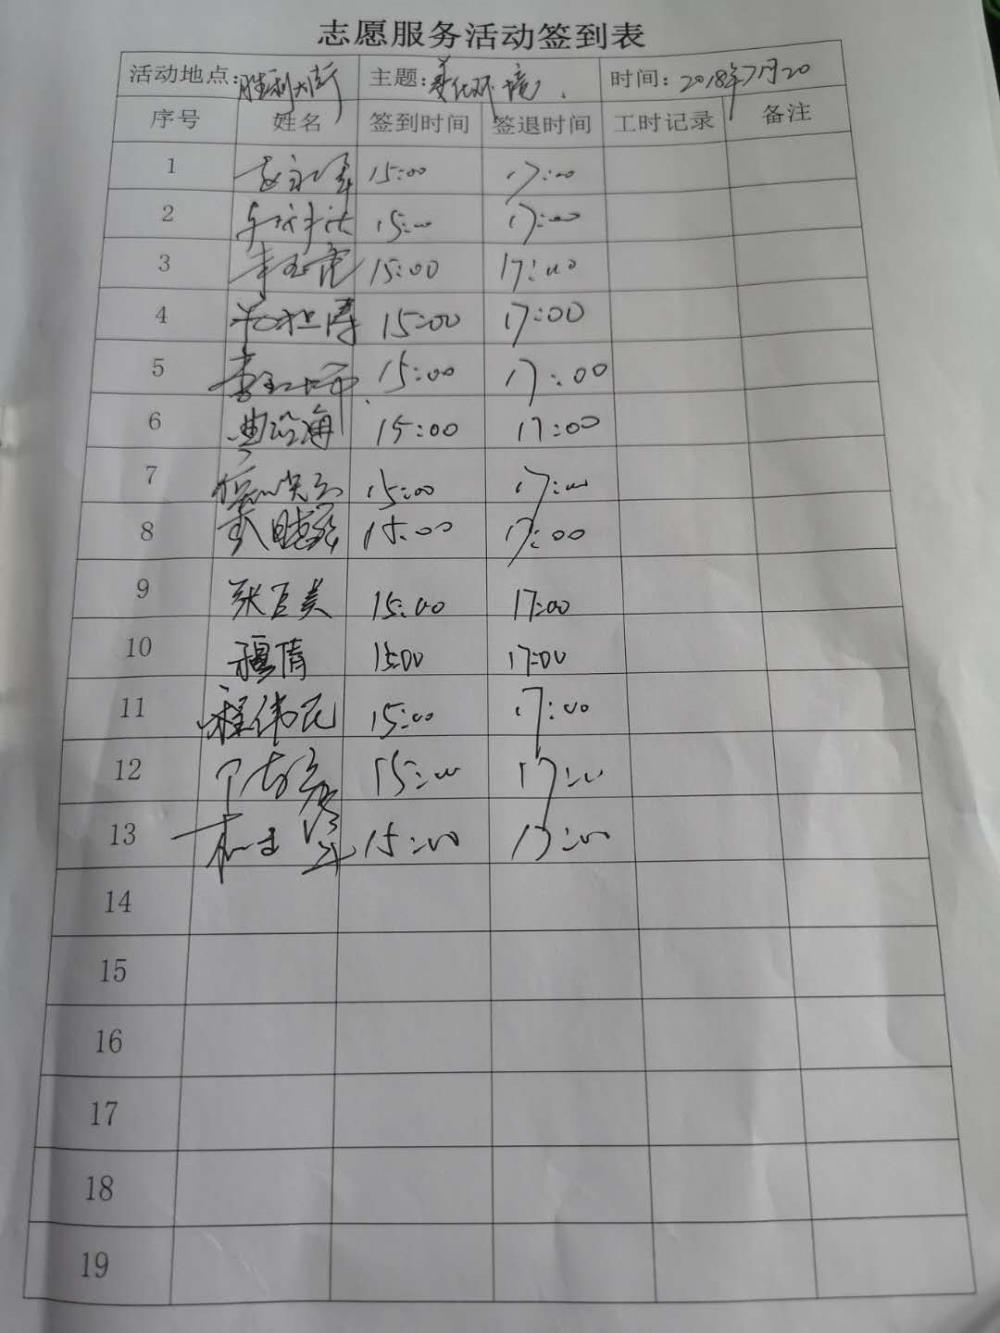 志愿服务活动签到表
活动地点:胜利大街 主题:美化环境. 时间:2018年7月20
序号 姓名 签到时间 签退时间 工时记录 备注
1 15:00 17:00
2 15:00 17:00
3 15:00 17:00
4 15:00 17:00
5 15:00 17:00
6 15:00 17:00
7 15:00 17:00
8 15:00 17:00
9 张巨美 15:00 17:00
10 穆倩 15:00 17:00
11 程伟民 15:00 17:00
12 15:00 17:00
13 15:00 17:00
14
15
16
17
18
19